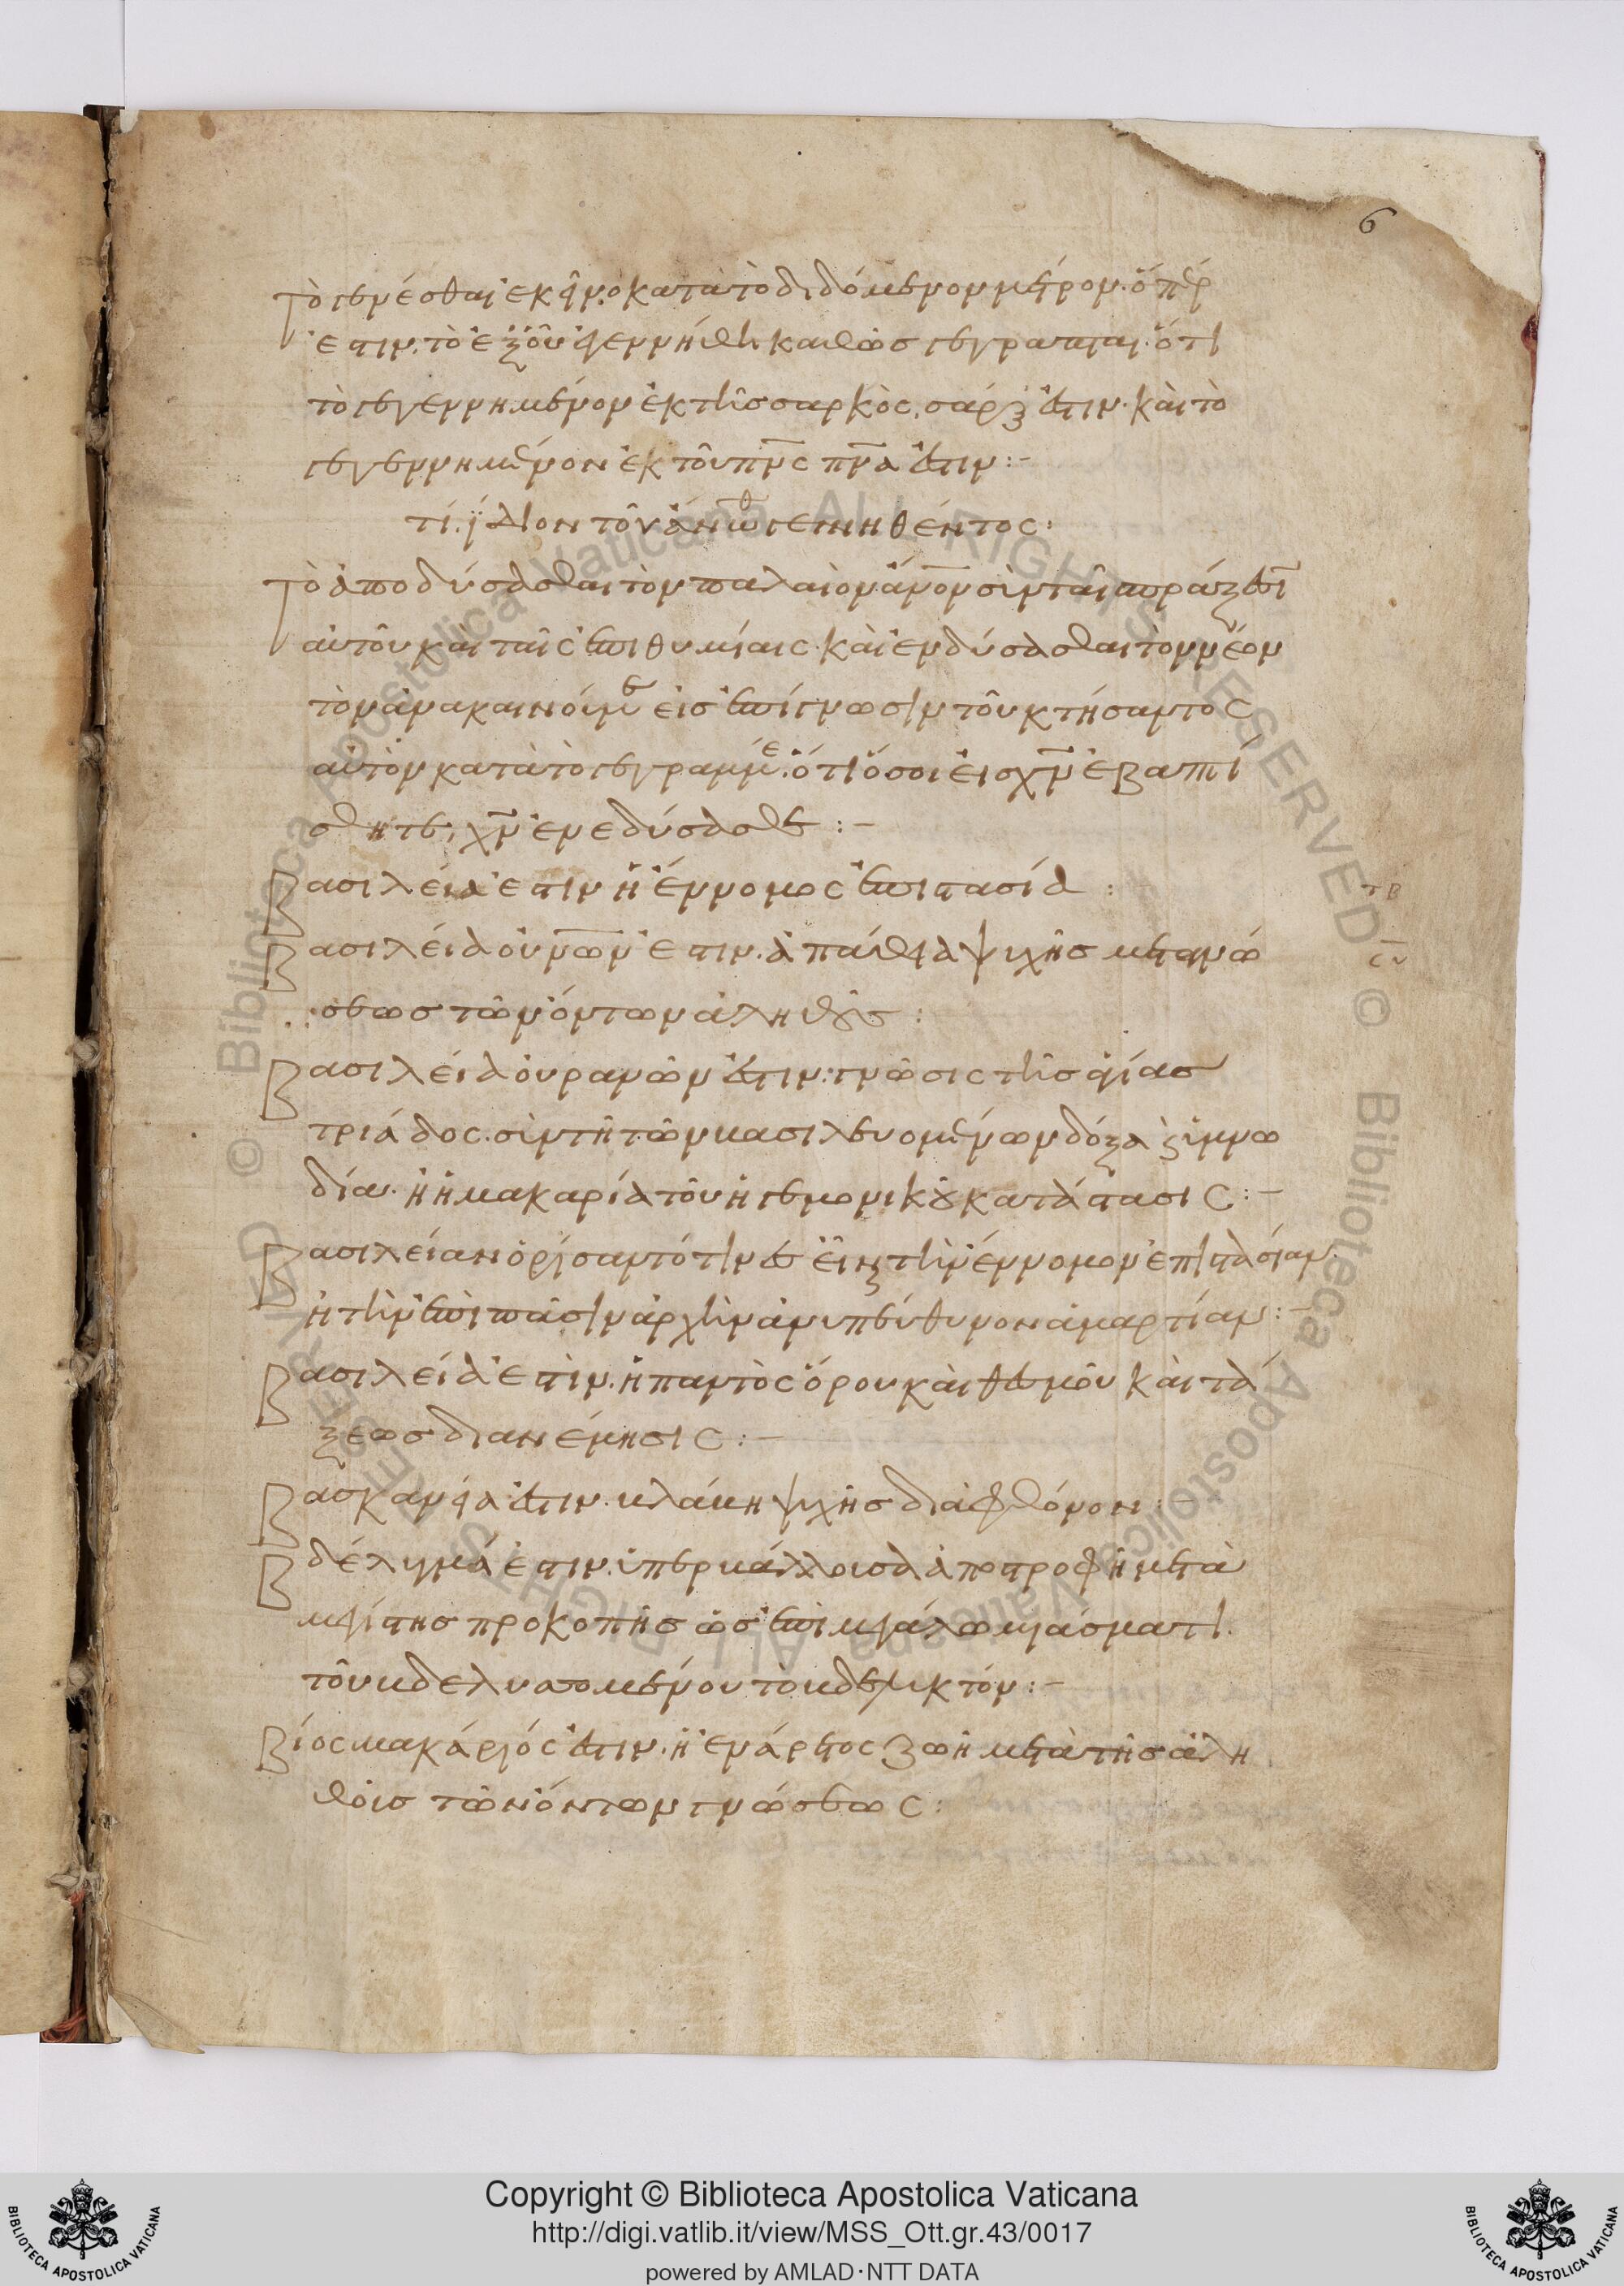 6
Τὸ γενέσθαι ἐκεῖνο κατὰ τὸ διδόμενον μέτρον. ὅπερ
ἐστιν. τὸ ἐξ οὗ ἐγεννήθη καθὼς γέγραπται. ὅτι
τὸ γεγεννημένον ἐκ τῆς σαρκὸς, σάρξ ἐστιν. καὶ τὸ
γεγεννημένον ἐκ τοῦ πν̅ς πν̅α ἐστιν :-
τί ἴδιον τοῦ ἄνωθ γεννηθέντος :
Τὸ ἀποδύσασθαι τὸν παλαιὸν ἄν̅ον σὺν ταῖ πράξεσι
αὐτοῦ καὶ ταῖς ἐπιθυμίαις. καὶ ἐνδύσασθαι τὸν νέον
τὸν ἀνακαινούμε εἰς ἐπίγνωσιν τοῦ κτήσαντος
αὐτὸν κατὰ τὸ γεγραμμέ. ὅτι ὅσοι εἰς χν̅ ἐβαπτί
σθητε, χν̅ ἐνεδύσασθε :-
Βασιλεία ἐστιν ἡ ἔννομος ἐπιστασία :
Βασιλεία οὐν̅ων ἐστιν. ἀπάθεια ψυχῆς μετὰ γνώ
σεως τῶν ὄντων ἀληθοῦς :
Βασιλεία οὐρανῶν ἐστιν: γνῶσις τῆς ἁγίας
τριάδος. σὺν τῆ τῶν βασιλευομένων δόξα ὑμνω
δία. ἢ ἡ μακαρία τοῦ ἡγεμονικοῦ κατάστασις :-
Βασιλείαν ὁρίσαντό τινες εἶναι τὴν ἔννομον ἐπιστασίαν.
ἢ τὴν ἐπὶ πᾶσιν ἀρχὴν ἀνυπεύθυνον ἁμαρτίαν :-
Βασιλεία ἐστιν. ἡ παντὸς ὅρου καὶ θεσμοῦ καὶ τά
ξεως διανέμησις :-
Βασκανία ἐστιν. βλάβη ψυχῆς διάφθορον :-
Βδέλυγμά ἐστιν. ὑπερβάλλουσα ἀποστροφὴ μετὰ
μεγίστης προκοπῆς ὡς ἐπὶ μεγάλω μιάσματι.
τοῦ βδελυσσομένου τὸ βδελυκτόν :-
Βίος μακάριός ἐστιν. ἡ ἐνάρετος ζωὴ μετὰ τῆς ἀλη
θοῦς τῶν ὄντων γνώσεως :
Copyright © Biblioteca Apostolica Vaticana
http://digi.vatlib.it/view/MSS_Ott.gr.43/0017
powered by AMLAD·NTT DATA
BIBLIOTECA APOSTOLICA VATICANA
BIBLIOTECA APOSTOLICA VATICANA